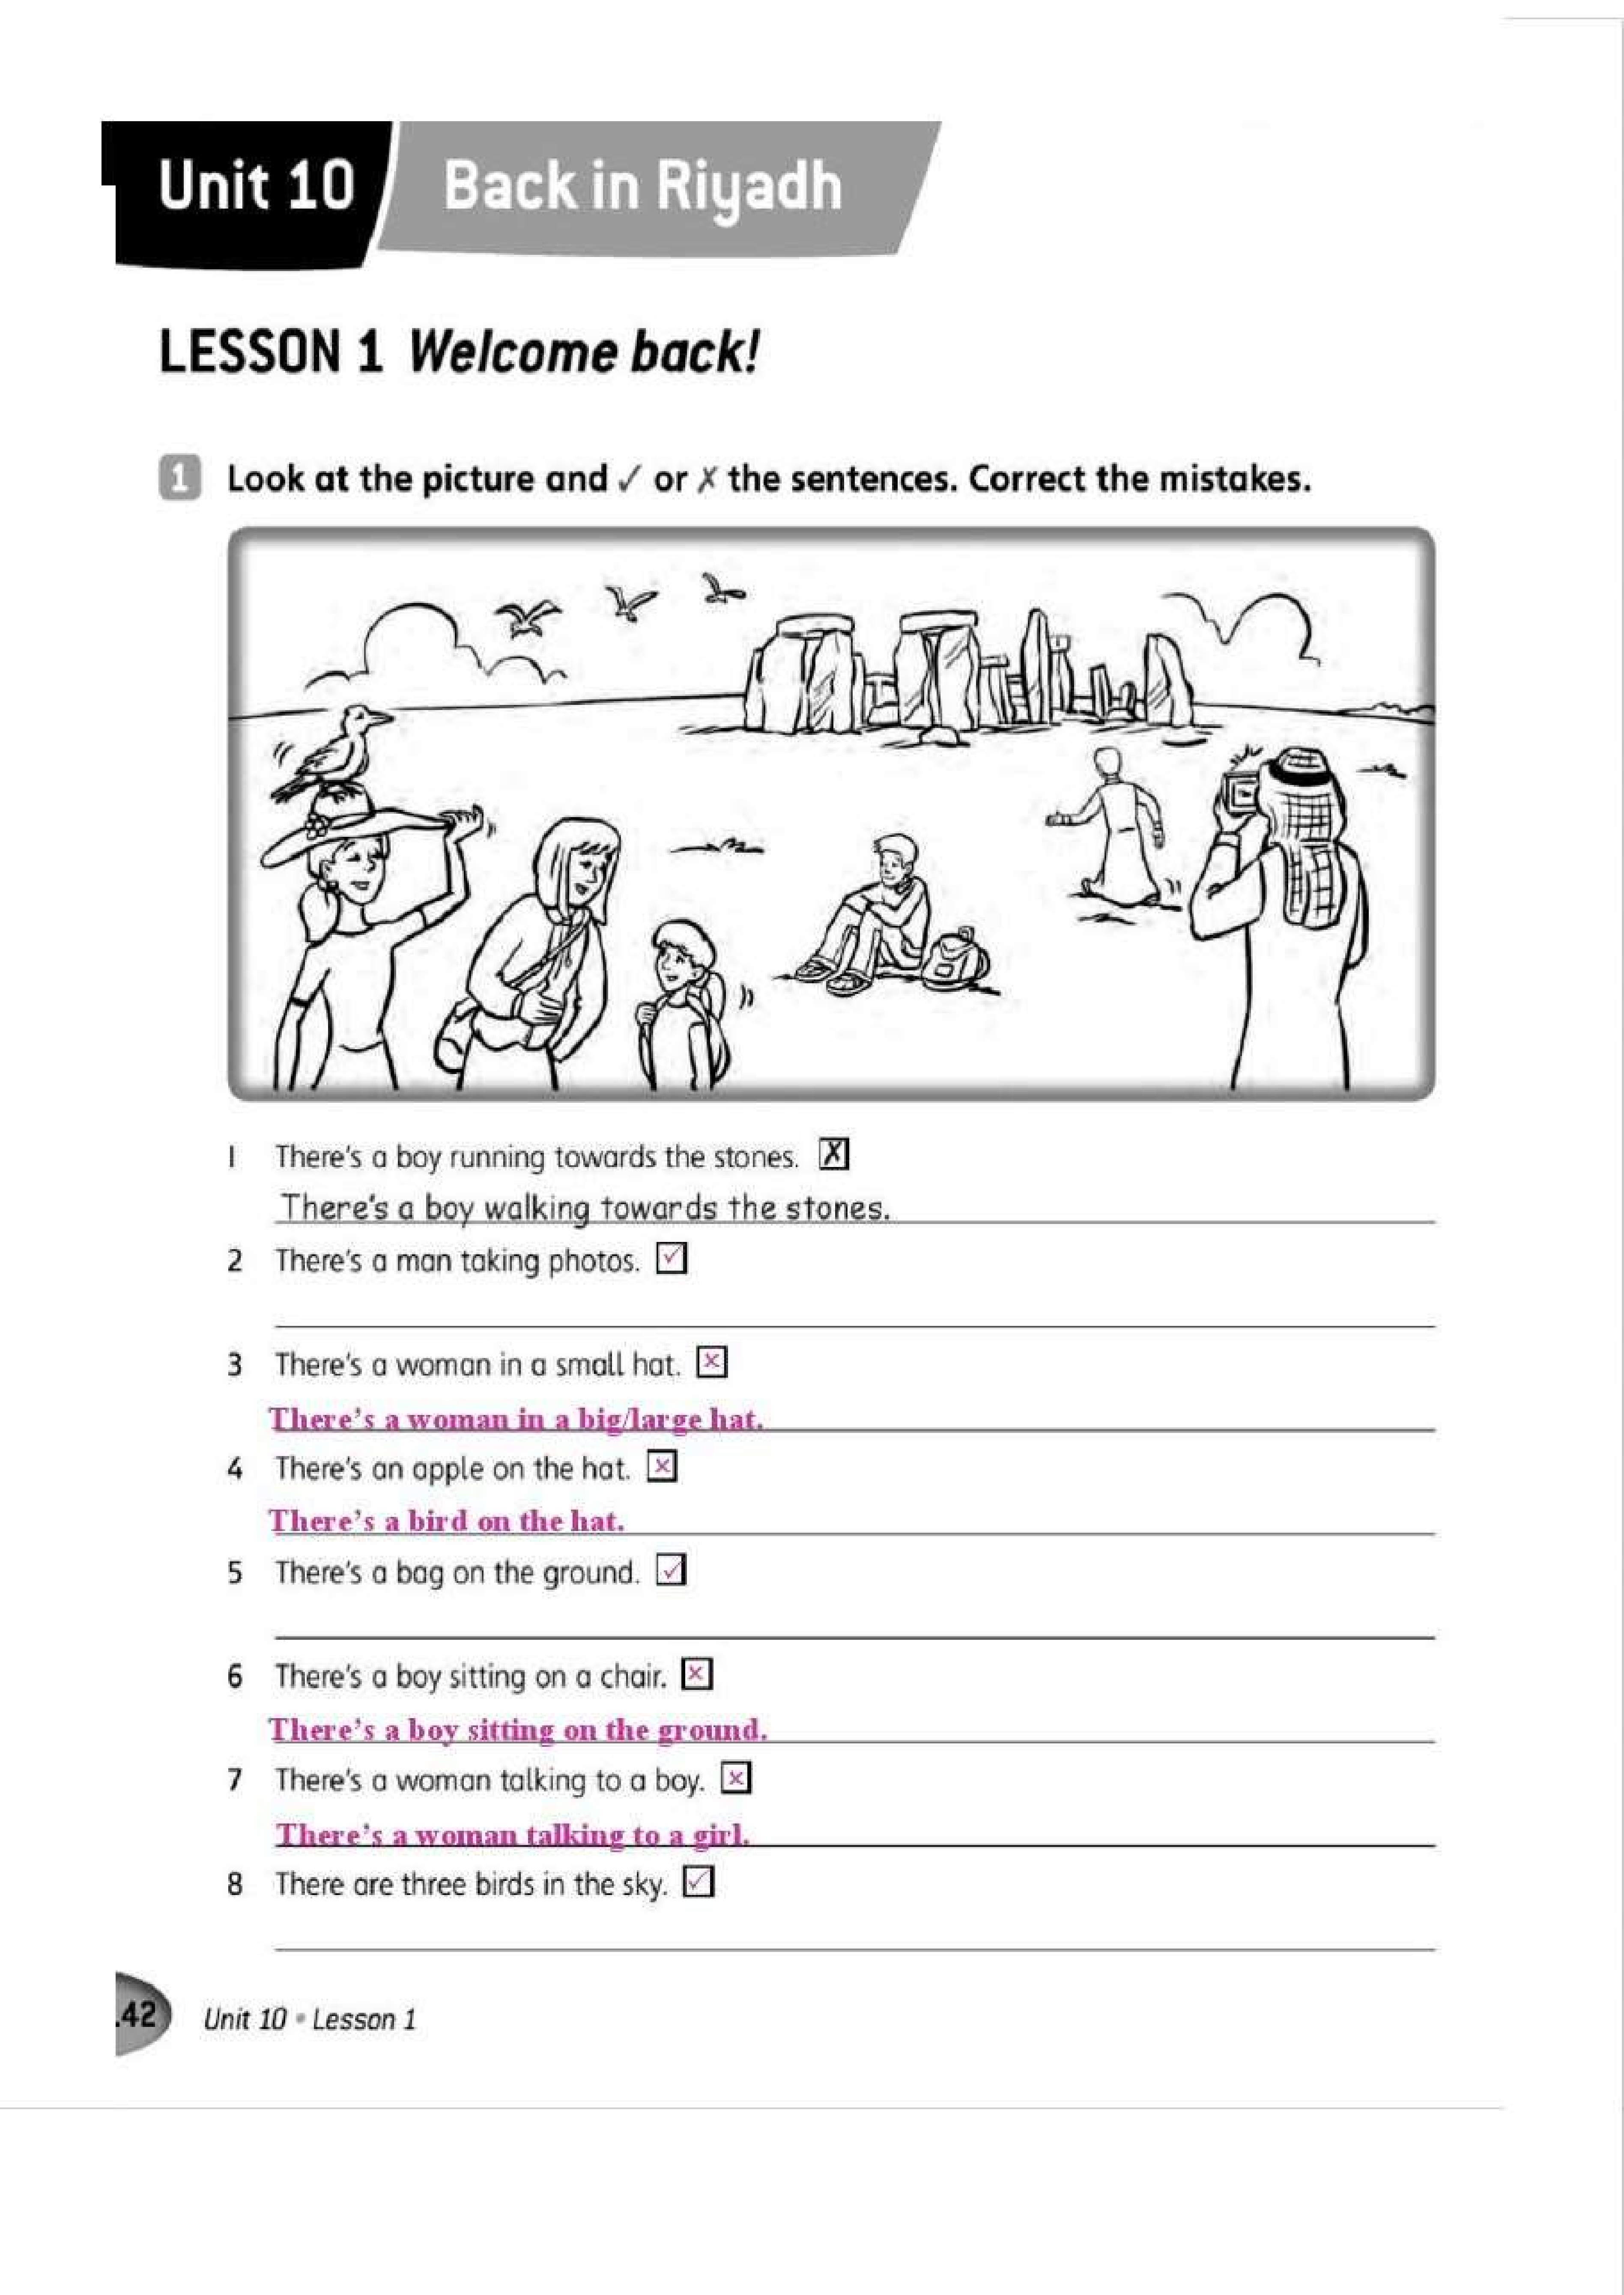 Unit 10 Back in Riyadh
LESSON 1 Welcome back!
1 Look at the picture and ✓ or ✗ the sentences. Correct the mistakes.
1 There's a boy running towards the stones. ✗
There's a boy walking towards the stones.
2 There's a man taking photos. ✓
3 There's a woman in a small hat. ✗
There's a woman in a big/large hat.
4 There's an apple on the hat. ✗
There's a bird on the hat.
5 There's a bag on the ground. ✓
6 There's a boy sitting on a chair. ✗
There's a boy sitting on the ground.
7 There's a woman talking to a boy. ✗
There's a woman talking to a girl.
8 There are three birds in the sky. ✓
.42 Unit 10 • Lesson 1